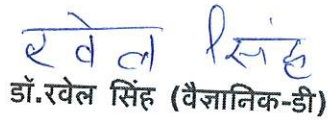 रवेल सिंह
डॉ.रवेल सिंह (वैज्ञानिक-डी)